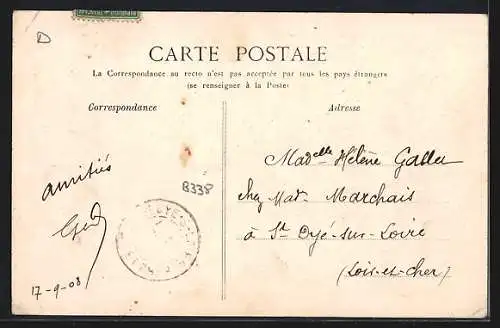 D
CARTE POSTALE
La Correspondance au recto n'est pas acceptée par tous les pays étrangers
(se renseigner à la Poste)
Correspondance
Adresse
amitiés
17-9-08
B338
Mad^elle Hélène
chez Mad. Marchais
à St Dyé-sur-Loire
(Loir-et-Cher)